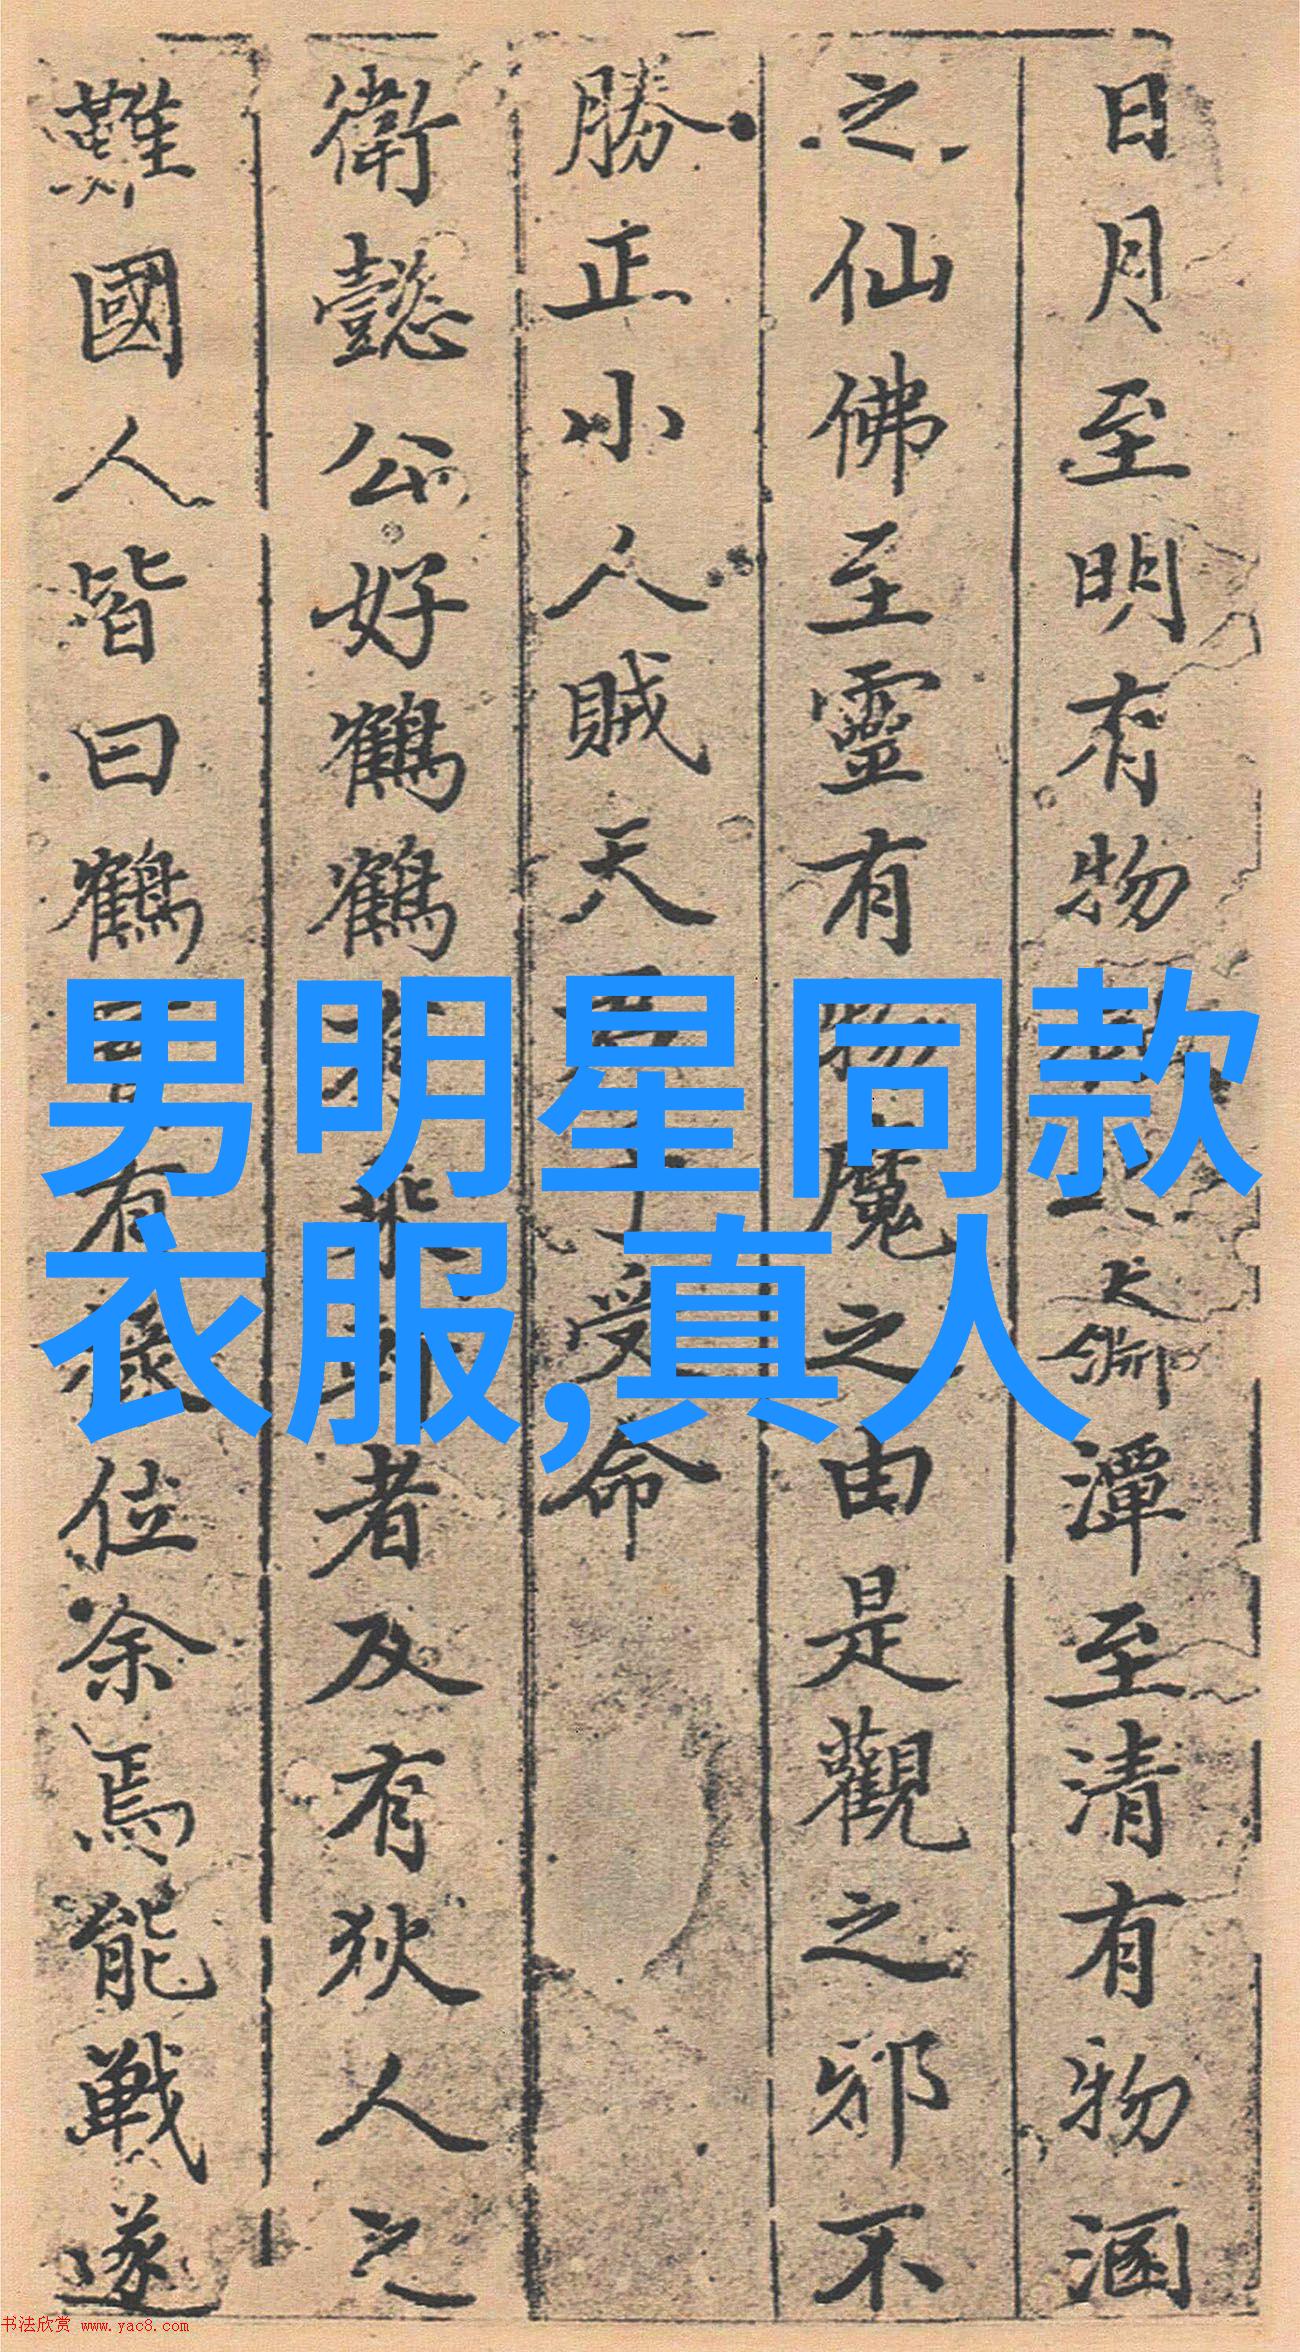 日月至明有物
大
潭至清有物溷
之仙佛至靈有物魔之由是觀之邪不
勝正小人賊天
受命
衛懿公好鶴鶴
者及有狄人之
難國人皆曰鶴
有祿位余焉能戰遂
男明星同款
衣服,真人
书法欣赏 www.yac8.com